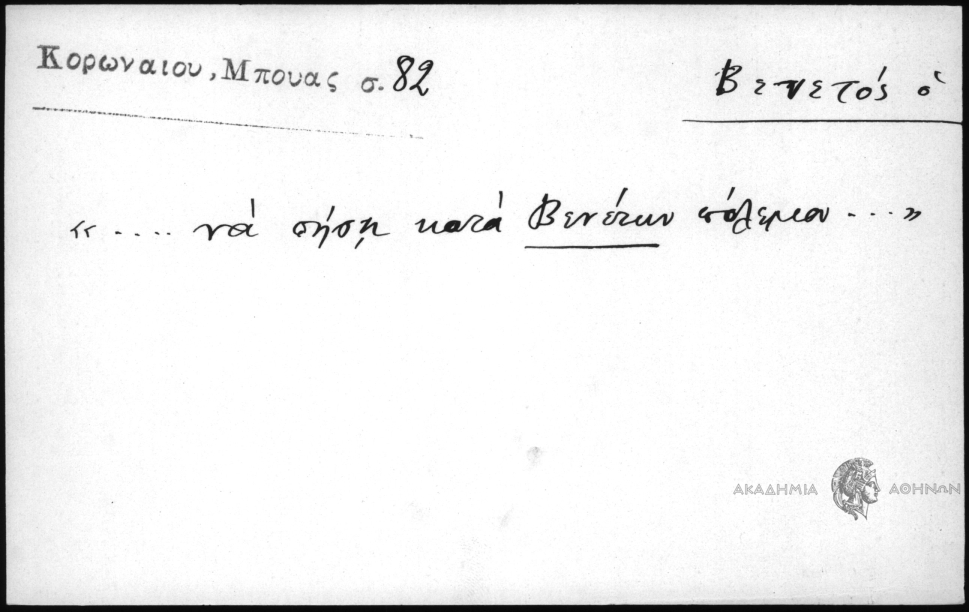 Κορωναιου, Μπουας σ. 82
Βενετός ὁ
«.... νά στήσῃ κατά Βενέτων πόλεμον ...»
ΑΚΑΔΗΜΙΑ ΑΘΗΝΩΝ